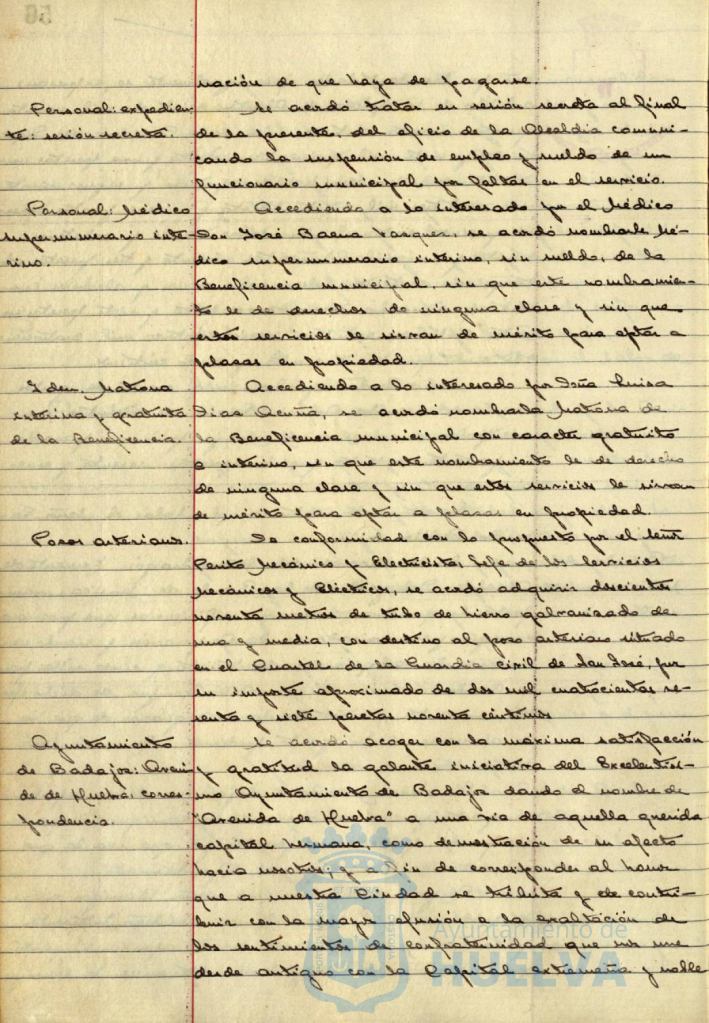 nación de que haya de pagarse.
Personal: expedien-
te: sesión secreta.
Se acordó tratar en sesión secreta al final
de la presente, del oficio de la Alcaldía comuni-
cando la suspensión de empleo y sueldo de un
funcionario municipal por faltas en el servicio.
Personal: Médico
supernumerario inte-
rino.
Accediendo a lo interesado por el Médico
Don José Baena Vazquez, se acordó nombrarle Mé-
dico supernumerario interino, sin sueldo, de la
Beneficencia municipal, sin que este nombramien-
to le de derechos de ninguna clase y sin que
estos servicios le sirvan de mérito para optar a
plazas en propiedad.
Idem. Matrona
interina y gratuita
de la Beneficencia.
Accediendo a lo interesado por Doña Luisa
Diaz Acuña, se acordó nombrarla Matrona de
la Beneficencia municipal con caracter gratuito
e interino, sin que este nombramiento le de derecho
de ninguna clase y sin que estos servicios le sirvan
de mérito para optar a plazas en propiedad.
Pozos artesianos.
De conformidad con lo propuesto por el señor
Perito Mecánico y Electricista, Jefe de los Servicios
Mecánicos y Eléctricos, se acordó adquirir doscientos
noventa metros de tubo de hierro galvanizado de
una y media, con destino al pozo artesiano situado
en el Cuartel de la Guardia Civil de San José, por
su importe aproximado de dos mil cuatrocientas se-
senta y siete pesetas noventa céntimos
Ayuntamiento
de Badajoz: Aveni-
da de Huelva: corres-
pondencia.
Se acordó acoger con la máxima satisfacción
y gratitud la galante iniciativa del Excelentísi-
mo Ayuntamiento de Badajoz dando el nombre de
"Avenida de Huelva" a una via de aquella querida
capital hermana, como demostración de su afecto
hacia nosotros; y a fin de corresponder al honor
que a nuestra Ciudad se tributa y de contri-
buir con la mayor efusión a la exaltación de
los sentimientos de confraternidad que nos une
desde antiguo con la Capital extremeña y noble
Ayuntamiento de
HUELVA